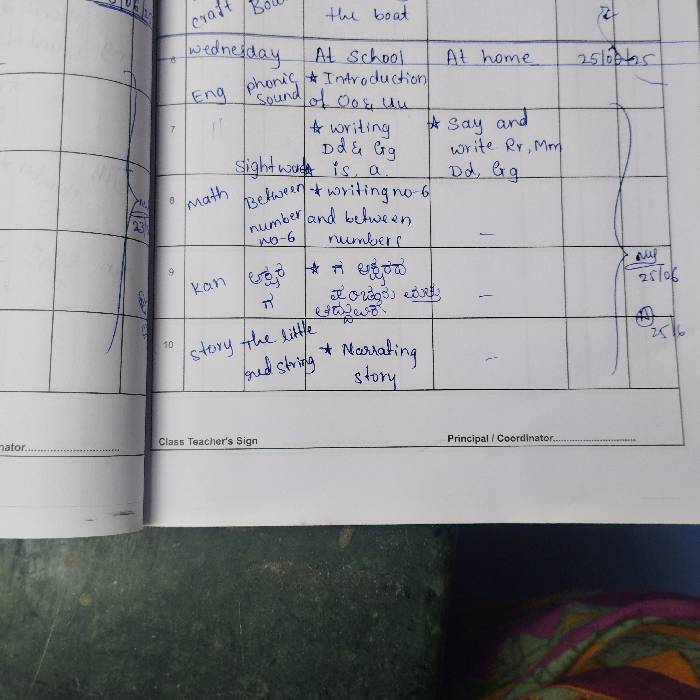 craft
the boat
6 Wednesday At school At home 25/06/25
Eng phonic sound ★ Introduction of Oo & Uu
7 ★ writing Dd & Gg ★ Say and write Rr, Mm Dd, Gg
Sight word ★ is, a.
8 Math Between number no-6 ★ writing no-6 and between numbers –
9 Kan ಅಕ್ಷರ ಗ ★ ಗ ಅಕ್ಷರದ ಮತ್ತು –
25/06
10 Story The little red string ★ Narrating story –
25/6
Class Teacher's Sign Principal / Coordinator